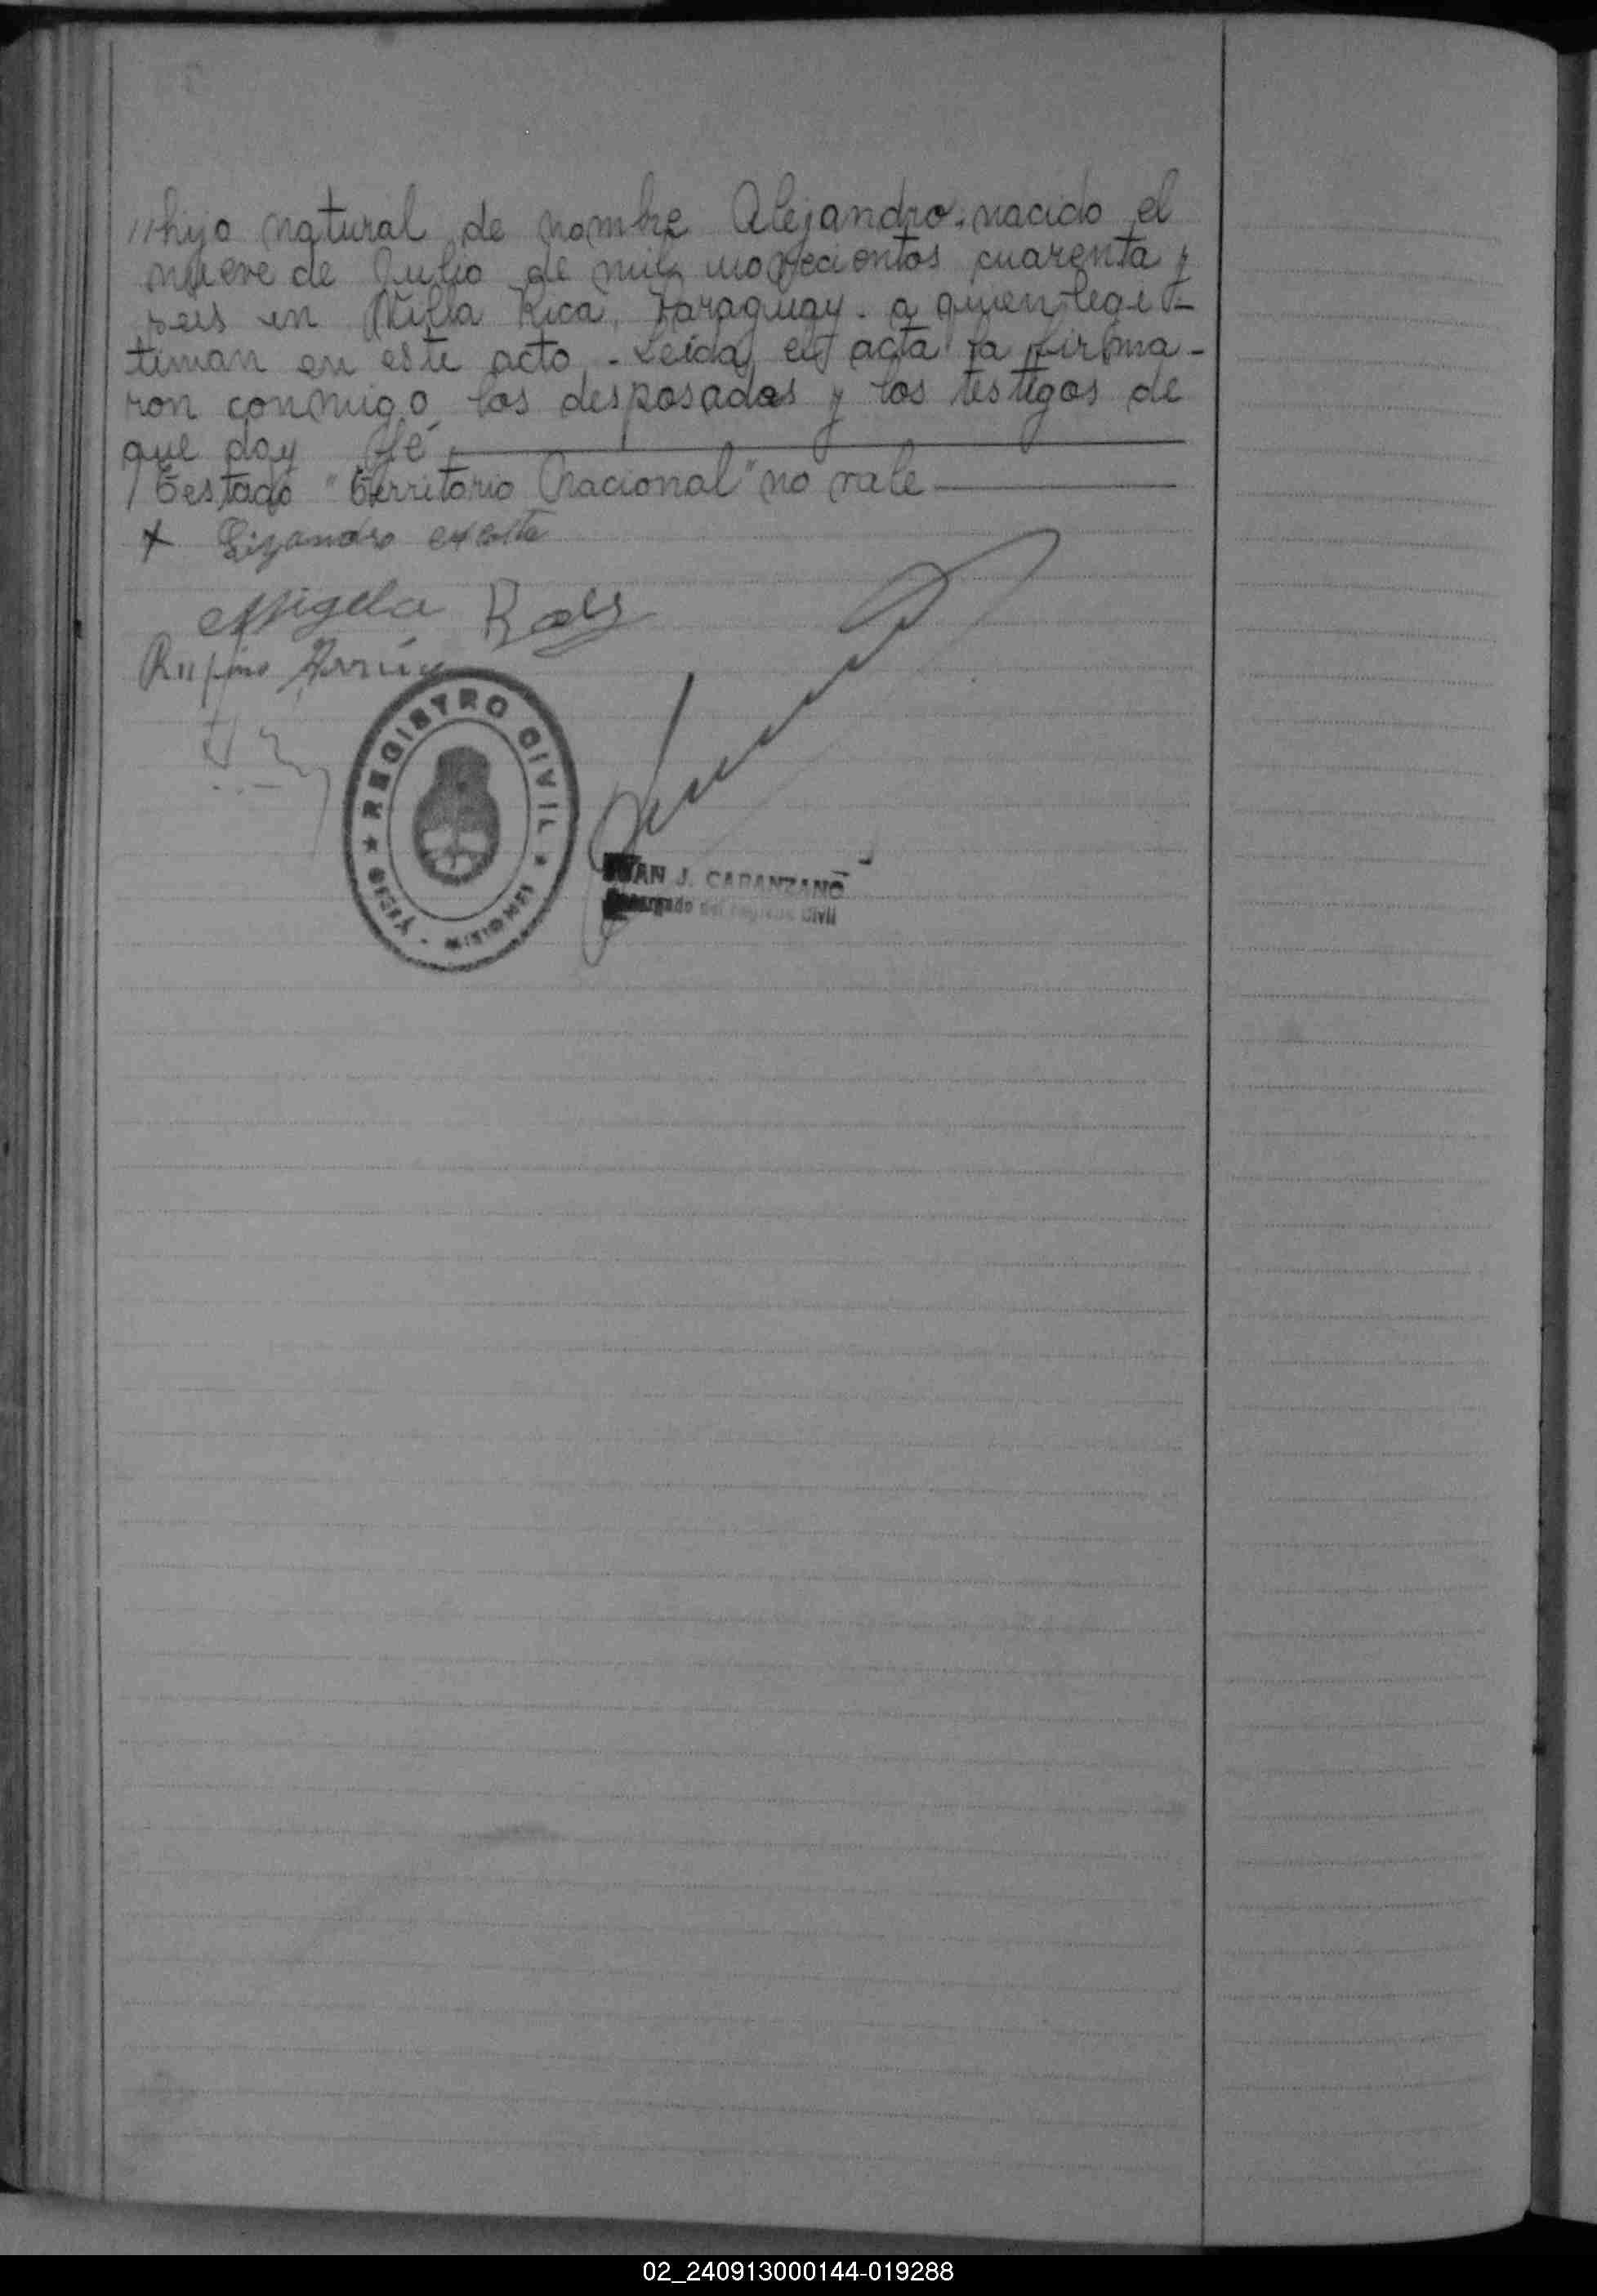 //hijo natural de nombre Alejandro, nacido el
nueve de Julio de mil novecientos cuarenta y
seis en Villa Rica, Paraguay. a quien legi-
timan en este acto. - Leida el acta la firma-
ron conmigo los desposados y los testigos de
que doy fé
Testado "Territorio Nacional" no vale
Lizandro
Migela
Rufino
REGISTRO CIVIL
MISIONES
JUAN J. CARANZANO
Encargado del Registro Civil
02_240913000144-019288